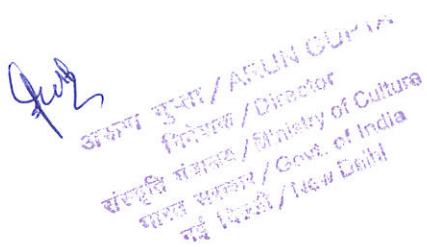 अरुण गुप्ता / ARUN GUPTA
निदेशक / Director
संस्कृति मंत्रालय / Ministry of Culture
भारत सरकार / Govt. of India
नई दिल्ली / New Delhi